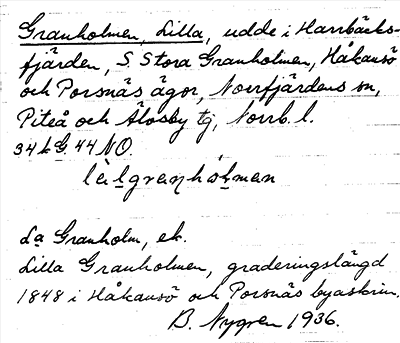 Granholmen, Lilla, udde i Harrbäcks-
fjärden, S. Stora Granholmen, Håkansö
och Porsnäs ägor, Norrfjärdens sn,
Piteå och Älvsby tg, Norrb. l.
34 k G. 44 NO.
làlgranhólman
La Granholm, ek.
Lilla Granholmen, graderingslängd
1848 i Håkansö och Porsnäs byaskrin.
B. Nygren 1936.